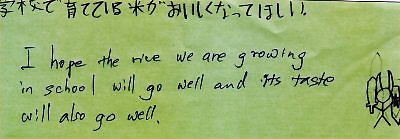 学校で育てている米がおいしくなってほしい。
I hope the rice we are growing
in school will go well and its taste
will also go well.